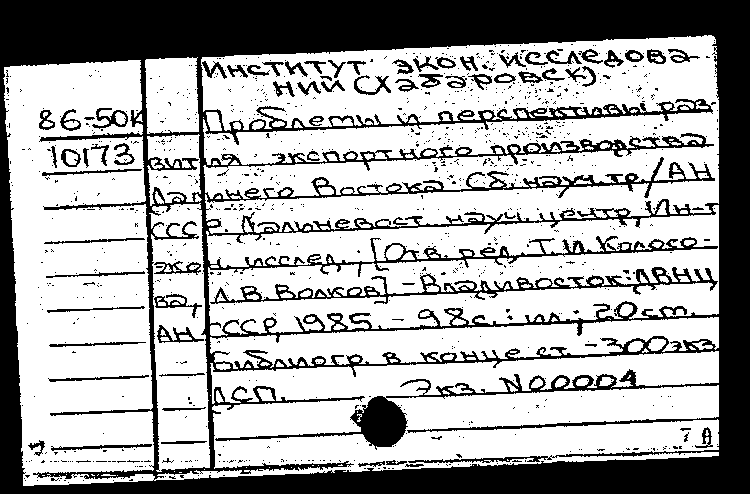 Институт экон. исследова-
ний (Хабаровск).
86-50к Проблемы и перспективы раз
10173 вития экспортного производства
Дальнего Востока: Сб. науч. тр. / АН
СССР. Дальневост. науч. центр, Ин-т
экон. исслед.; [Отв. ред. Т.И. Колосо-
ва, Л.В. Волков]. - Владивосток: ДВНЦ
АН СССР, 1985. - 98с.: ил.; 20см.
Библиогр. в конце ст. - 300экз
ДСП. Экз. N00004